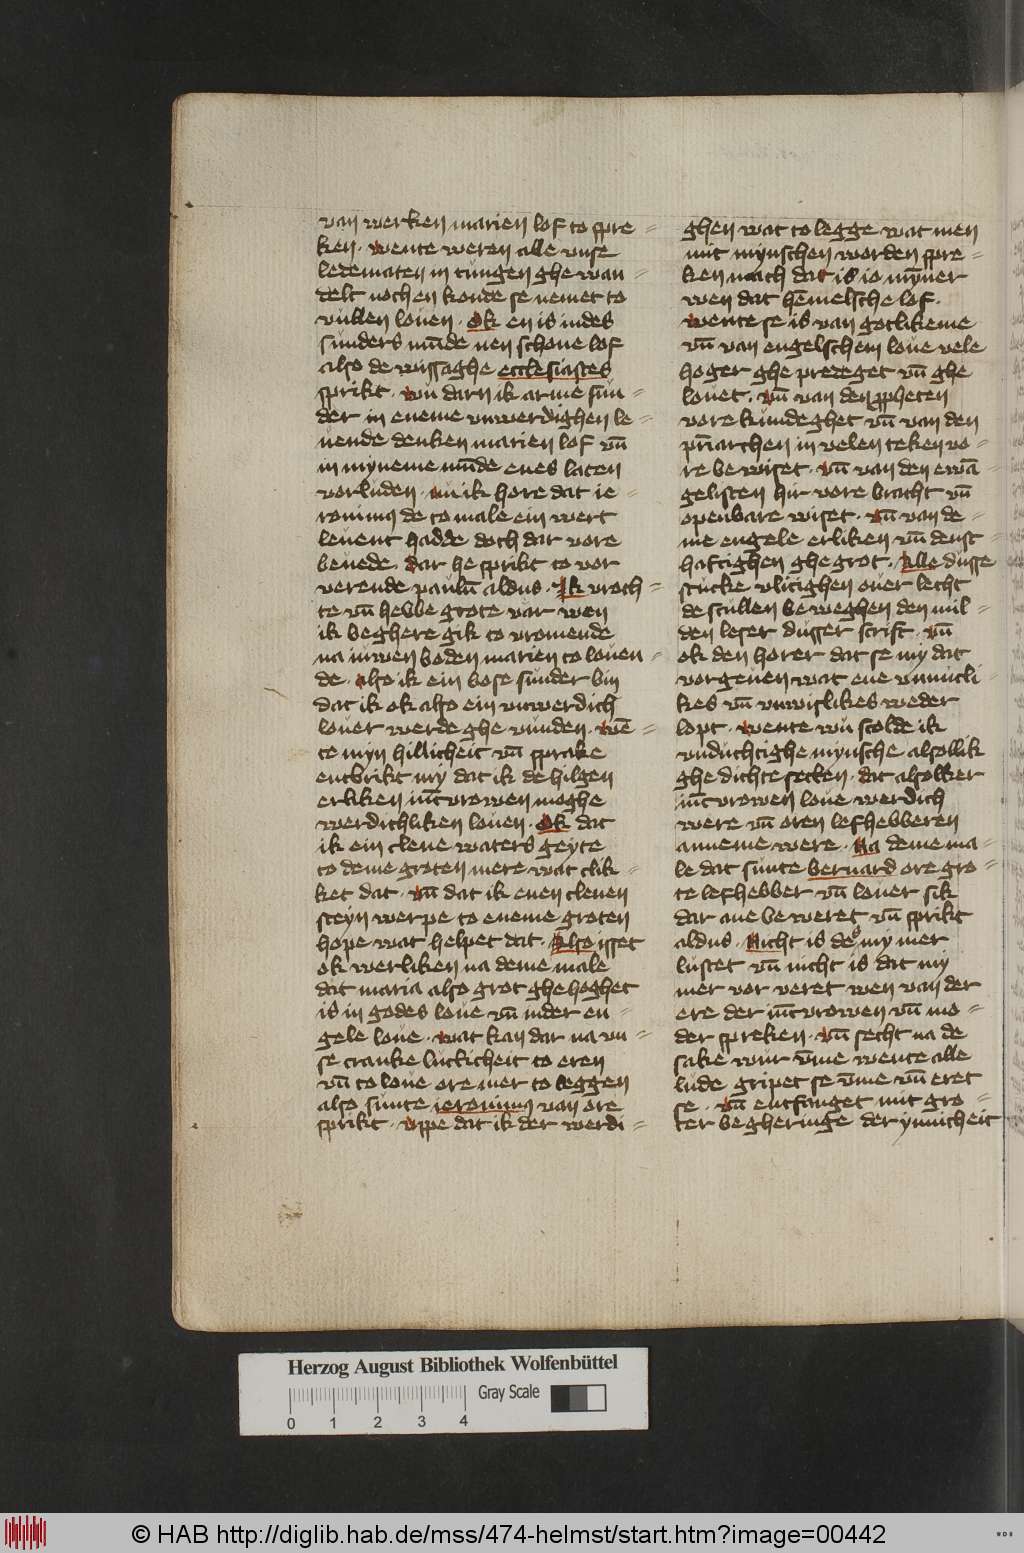 van werken marien lof to spre =
ken · wente weren alle vnse
ledematen in tungen ghe wan =
delt nochen konde se nemet to
vullen louen · Ok en is indes
sunders mūde nen schone lof
also de wissaghe ecclesiastes
sprikt · wu darn ik arme sun =
der in eneme vnwerdighen le =
uende denken marien lof vn̄
in myneme mūde enes laten
vorluden · nu ik hore dat ie =
ronimꝯ de to male ein wert
leuent hadde doch dar vore
beuede · dar he sprikt to vor
verende paulū aldus · Ik vroch =
te vn̄ hebbe grote var wen
ik beghere gik to vromende
na iuwen boden marien to louen =
de · also ik ein bose sunder bin
dat ik ok also ein vnwerdich
louer werde ghe vunden · wē =
te myn hillicheit vn̄ sprake
entbrikt my dat ik de hilgen
erliken iūcvrowen moghe
werdichliken louen · Ok dat
ik ein clene waters geyte
to deme groten mere wat clik =
ket dat · vn̄ dat ik enen clenen
steyn werpe to eneme groten
hope wat helpet dat · Also isset
ok werliken na deme male
dat maria also grot ghe hoghet
is in godes loue vn̄ inder en =
gele loue · wat kan dar na vn =
se cranke lutticheit to eren
vn̄ to loue ore mer to leggen
also sunte ieronimꝯ van ore
sprikt · vppe dat ik der werdi =
ghen wat to legge wat men
mit mynschen worden spre =
ken mach dat is io mȳner
wen dat hēmelsche lof ·
wente se is van gotlikeme
vn̄ van engelschem loue vele
hoger ghe prediget vn̄ ghe
louet · vn̄ van den ppheten
vore kundeghet vn̄ van den
pr̄iarchen in velen teken vo =
re bewiset · vn̄ van den ewā =
gelisten hir vore bracht vn̄
openbare wiset · vn̄ van de =
me engele erliken vn̄ denst =
haftighen ghe grot · Alle dusse
stucke vlitighen ouer lecht
de scullen beweghen den mil =
den leser dusser scrift · vn̄
ok den horer dat se my dat
vorgeuen wat ene vnnutli =
kes vn̄ vnwislikes weder
lopt · wente wu scolde ik
vnduchtighe mynsche alsollik
ghe dichte secken · dat alsolker
iūcvrowen loue werdich
were vn̄ oren lefhebberen
anneme were · Na deme ma =
le dat sunte bernard ore gro =
te lefhebber vn̄ louer sik
dar ane beweret vn̄ sprikt
aldus · Nicht is des my mer
lustet vn̄ nicht is dat my
mer vor veret wen van der
ere der iūcvrowen vn̄ mo =
der spreken · vn̄ secht na de
sake wur v̄me wente alle
lude gripet se v̄me vn̄ eret
se · vn̄ entfanget mit gro =
ter begheringe der ynnicheit
Herzog August Bibliothek Wolfenbüttel
Gray Scale
0 1 2 3 4
© HAB http://diglib.hab.de/mss/474-helmst/start.htm?image=00442